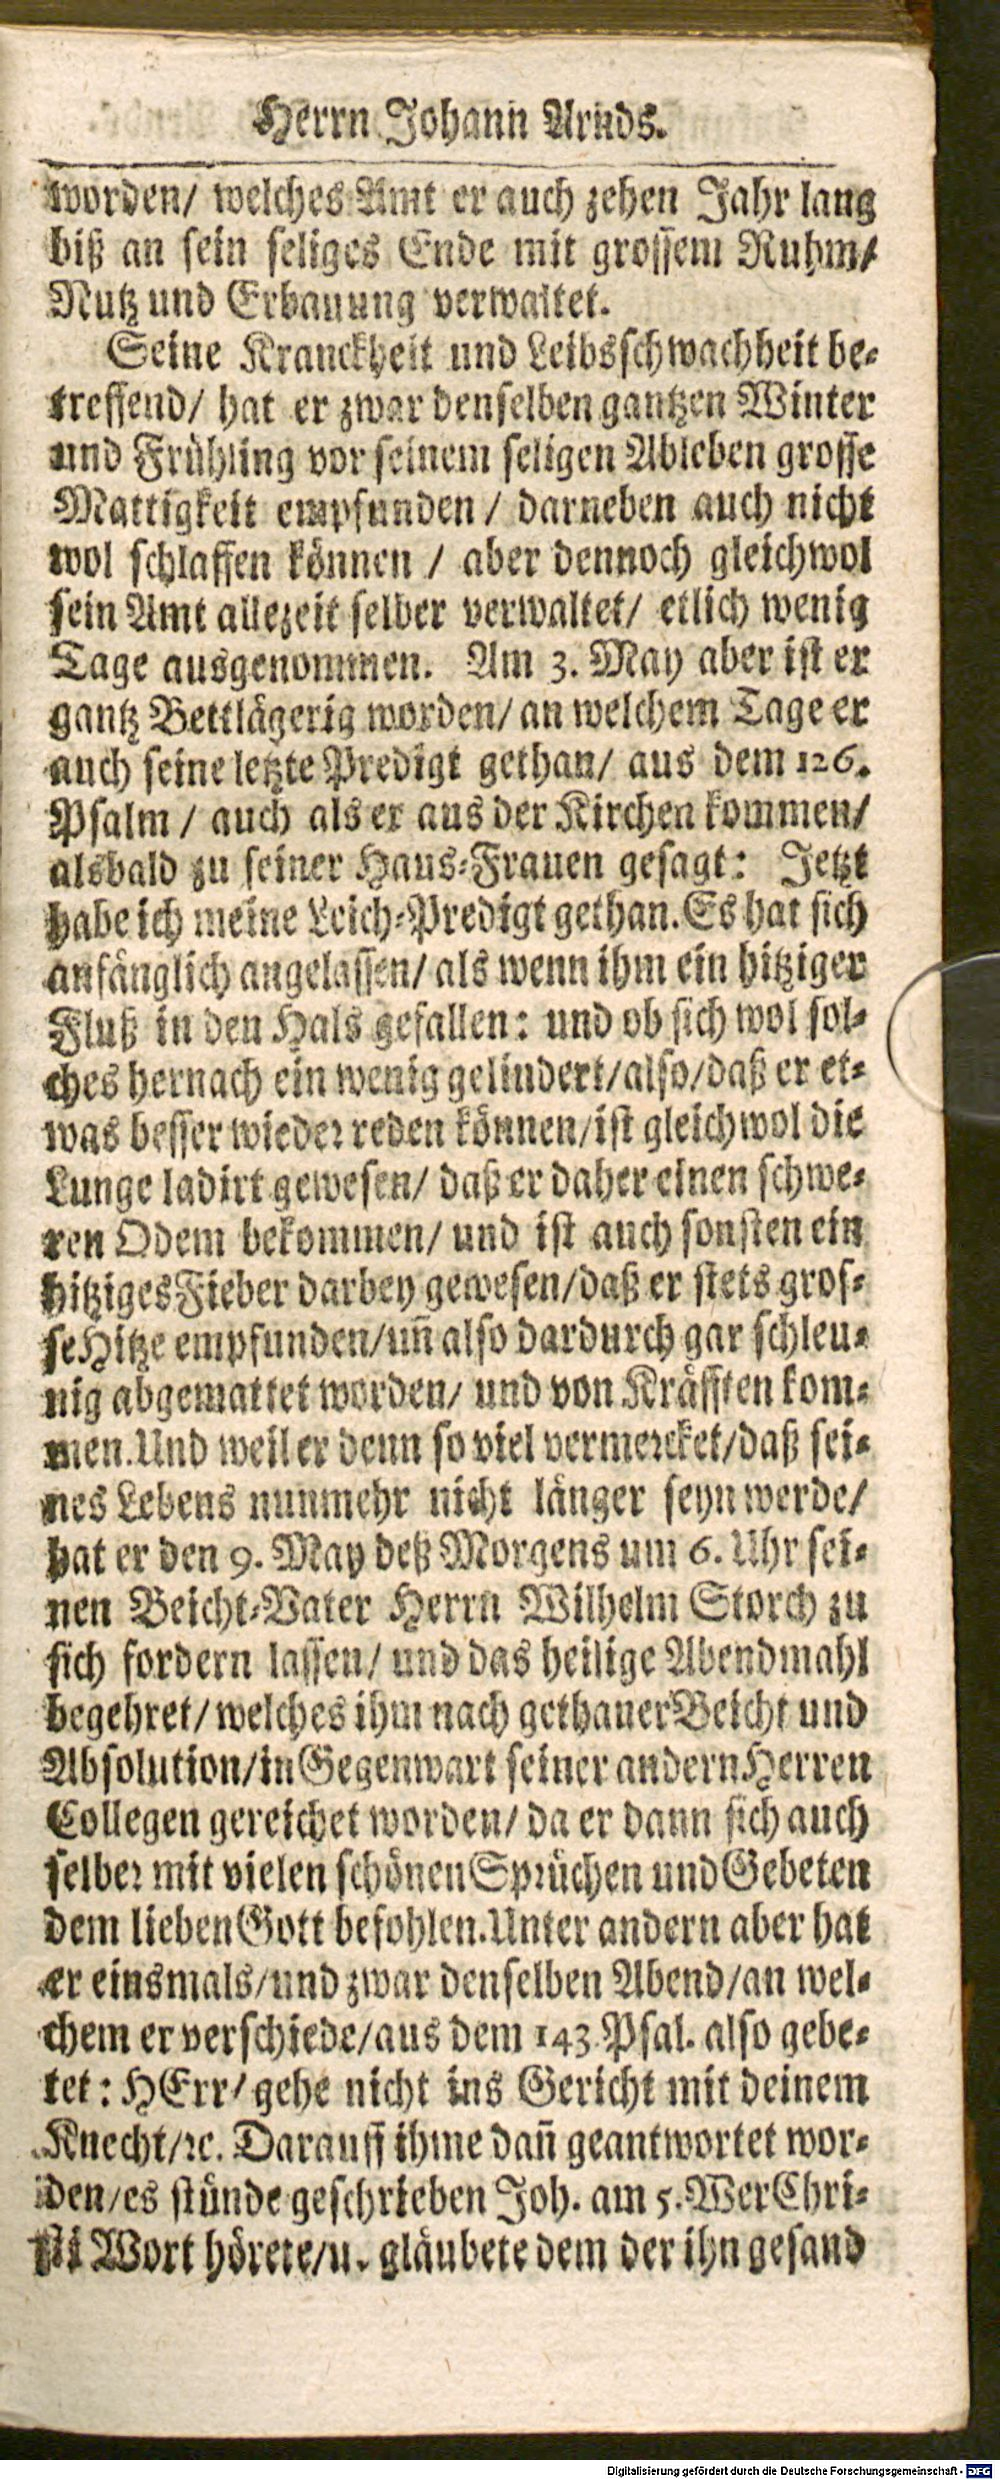 Herrn Johann Arnds.
worden/ welches Amt er auch zehen Jahr lang
biß an sein seliges Ende mit grossem Ruhm/
Nutz und Erbauung verwaltet.
Seine Kranckheit und Leibsschwachheit be-
treffend/ hat er zwar denselben gantzen Winter
und Frühling vor seinem seligen Ableben grosse
Mattigkeit empfunden / darneben auch nicht
wol schlaffen können / aber dennoch gleichwol
sein Amt allezeit selber verwaltet/ etlich wenig
Tage ausgenommen. Am 3. May aber ist er
gantz Bettlägerig worden/ an welchem Tage er
auch seine letzte Predigt gethan/ aus dem 126.
Psalm / auch als er aus der Kirchen kommen/
alsbald zu seiner Haus-Frauen gesagt: Jetzt
habe ich meine Leich-Predigt gethan. Es hat sich
anfänglich angelassen/ als wenn ihm ein hitziger
Fluß in den Hals gefallen: und ob sich wol sol-
ches hernach ein wenig gelindert/also/daß er et-
was besser wieder reden können/ist gleichwol die
Lunge ladirt gewesen/ daß er daher einen schwe-
ren Odem bekommen/ und ist auch sonsten ein
hitziges Fieber darbey gewesen/daß er stets gros-
se Hitze empfunden/uñ also dardurch gar schleu-
nig abgemattet worden/ und von Kräfften kom-
men. Und weil er denn so viel vermercket/daß sei-
nes Lebens nunmehr nicht länger seyn werde/
hat er den 9. May deß Morgens um 6. Uhr sei-
nen Beicht-Vater Herrn Wilhelm Storch zu
sich fordern lassen/ und das heilige Abendmahl
begehret/ welches ihm nach gethaner Beicht und
Absolution/in Gegenwart seiner andern Herren
Collegen gereichet worden/ da er dann sich auch
selber mit vielen schönen Sprüchen und Gebeten
dem lieben Gott befohlen. Unter andern aber hat
er einsmals/und zwar denselben Abend/an wel-
chem er verschiede/aus dem 143 Psal. also gebe-
tet: HErr/ gehe nicht ins Gericht mit deinem
Knecht/ꝛc. Darauff ihme dañ geantwortet wor-
den/es stünde geschrieben Joh. am 5. Wer Chri-
sti Wort hörete/u. gläubete dem der ihn gesand
Digitalisierung gefördert durch die Deutsche Forschungsgemeinschaft - DFG